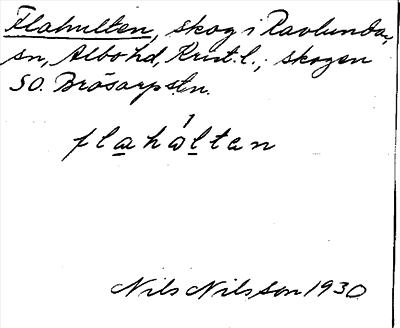 Flahulten, skog i Ravlunda
sn, Albo hd, Krist. l.; skogen
SO. Brösarps stn.
flahåltan
Nils Nilsson 1930